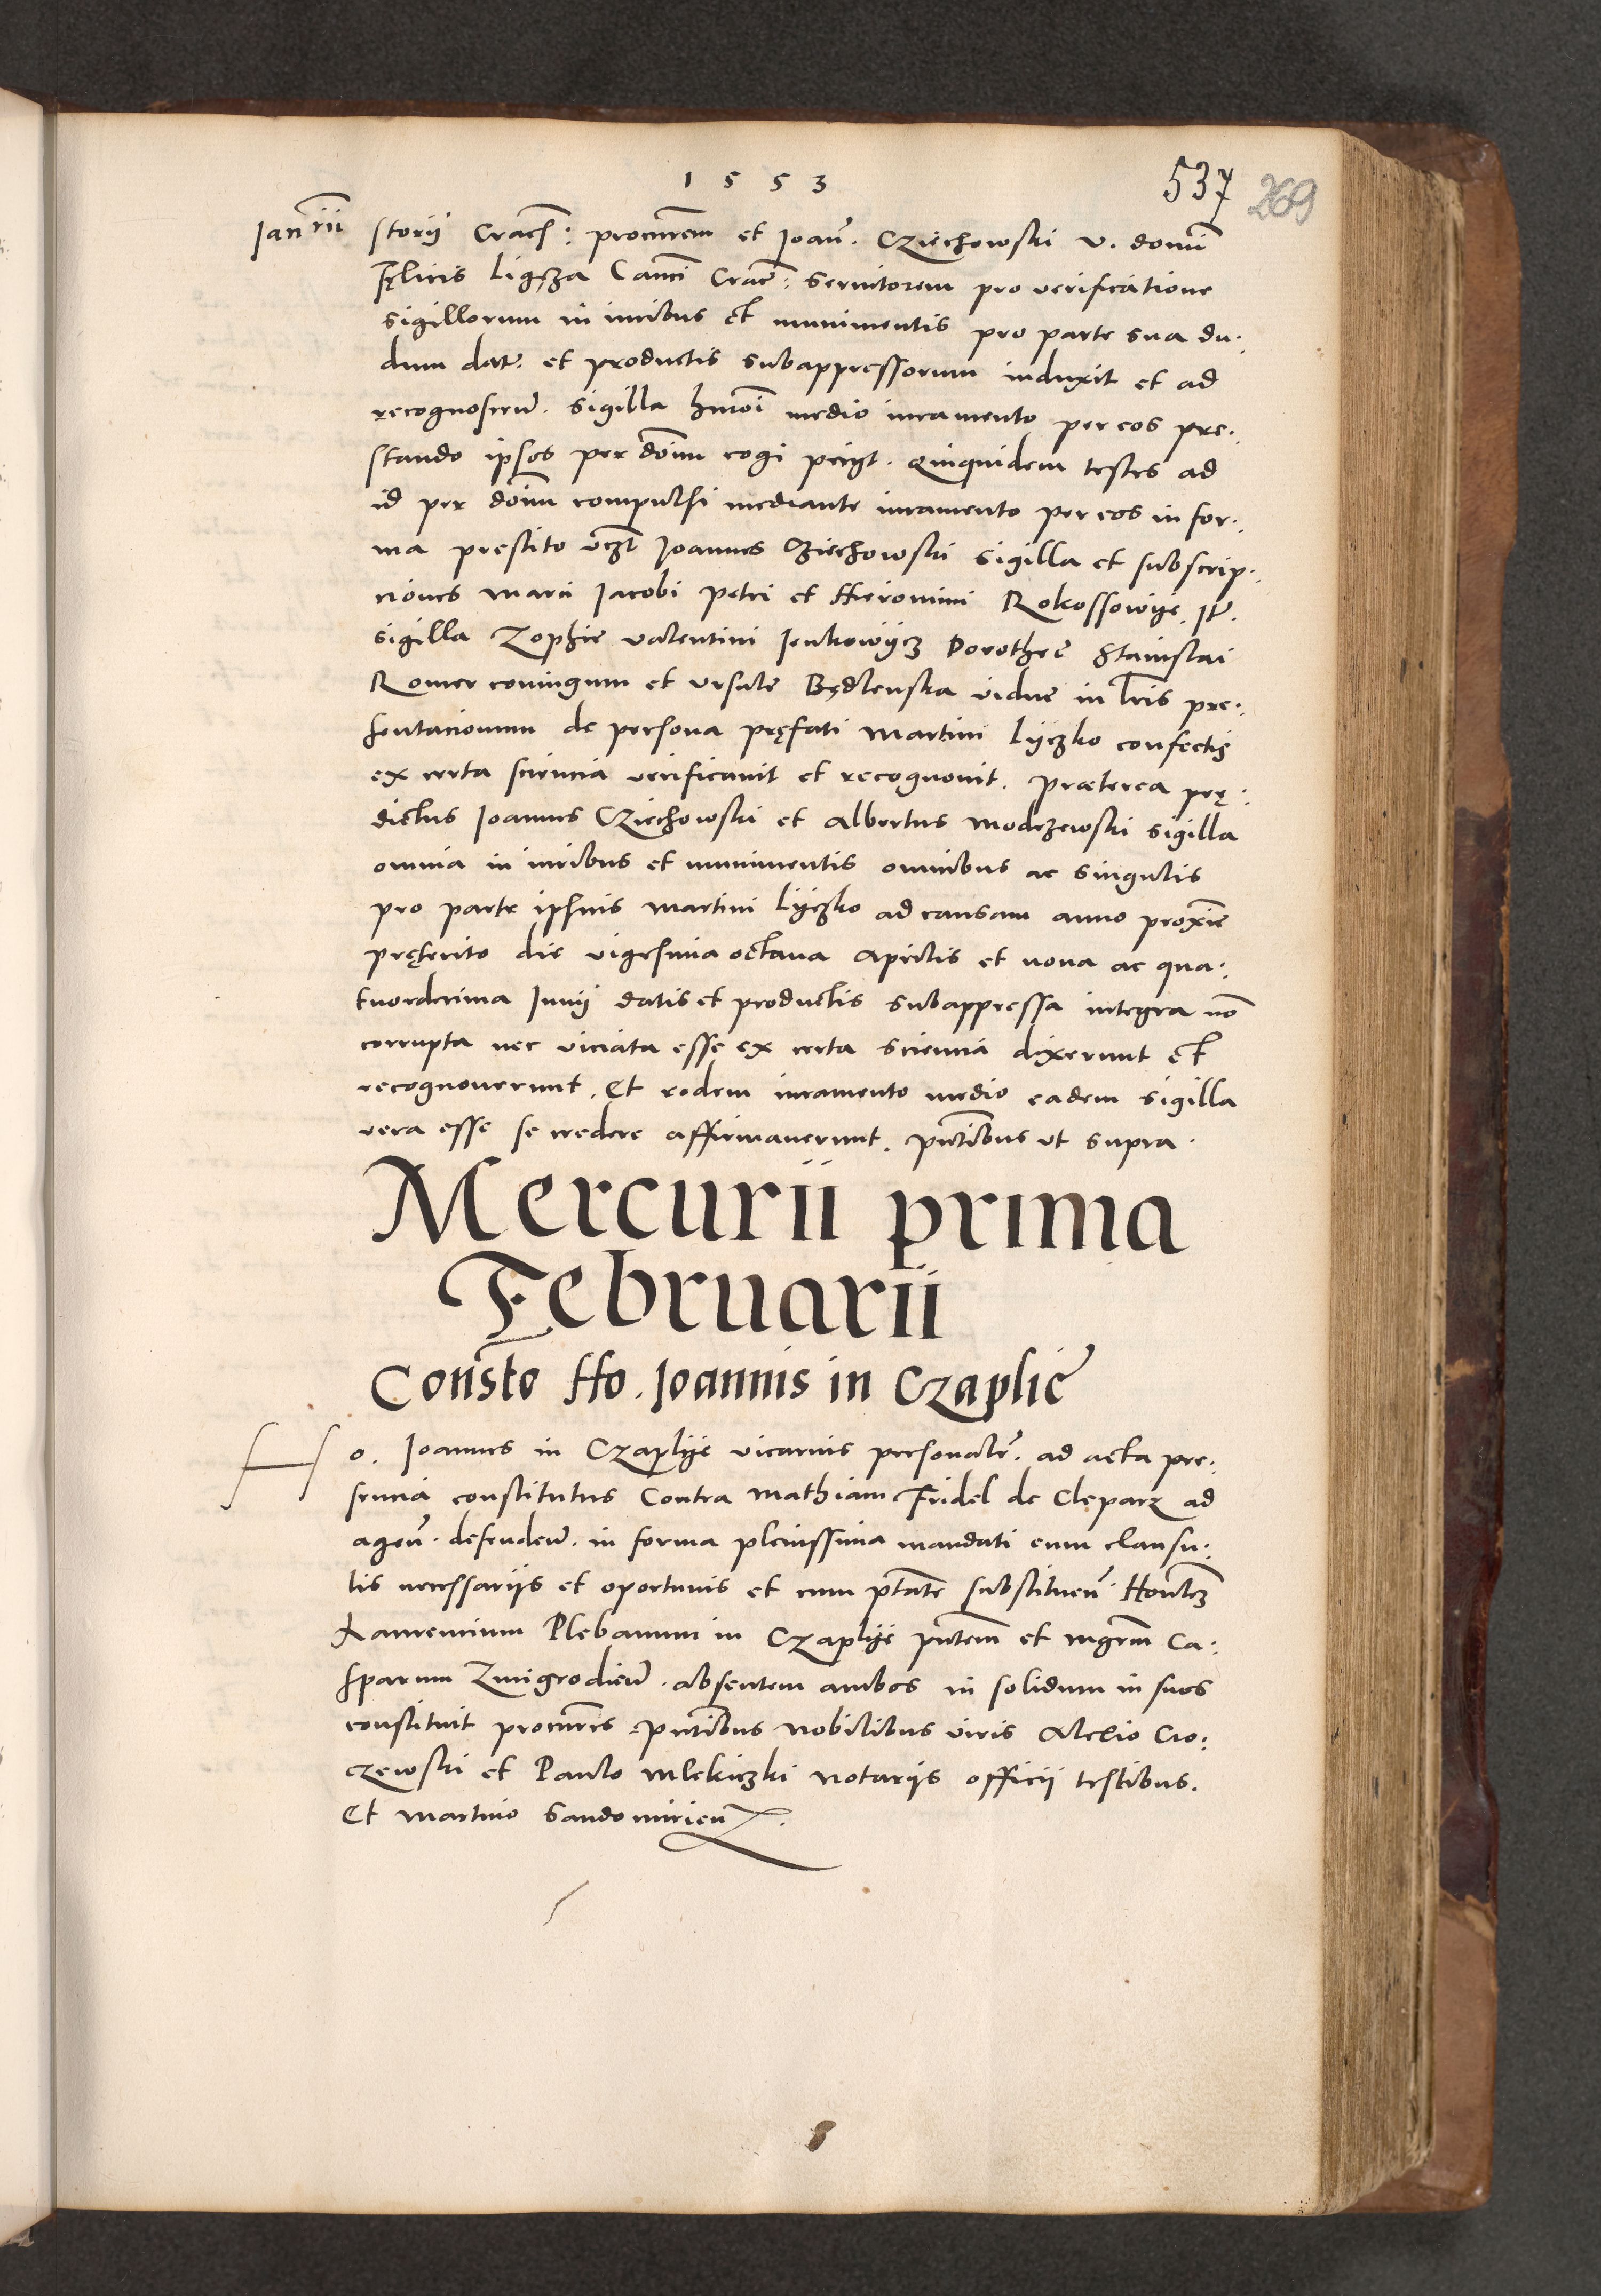 1553
537 269
Ianrii
storij Cracꝭ: procurem et Joan̄. Cziechowski v. domī
Fęlicis Ligęza Canci Crac̄: servitorem pro verificatione
sigillorum in iuribus et munimentis pro parte sua du:
dum dat̄. et productis subappressorum induxit et ad
recognoscen̄. sigilla hmōi medio iuramento per eos pre:
stando ipsos per dōm cogi peiyt. Quiquidem testes ad
id per dōm compulsi mediante iuramento per eos in for:
ma prestito vczt Joannes Cziechowski sigilla et subscrip:
ciones Marci Jacobi Petri et Hieronimi Rokossowije. It̄.
sigilla Zophie Valentini Jenkowijcz Dorothee Stanislai
Romer coniugum et Ursule Będlenska vidue in lris pre:
sentacionum de persona pręfati Martini Lyczko confectis
ex certa sciencia verificavit et recognovit. Præterea prę:
dictus Joannes Cziechowski et Albertus Modrzewski sigilla
omnia in iuribus et munimentis omnibus ac singulis
pro parte ipsius Martini Lyczko ad causam anno proxīe
pręterito die vigesima octava Aprilis et nona ac qua:
tuordecima Junij datis et productis subappressa integra nō
corrupta nec viciata esse ex certa sciencia dixerunt et
recognoverunt. Et eodem iuramento medio eadem sigilla
vera esse se credere affirmaverunt. pntibus ut supra.
Mercurii prima
Februarii
Consto Ho. Joannis in Czaplic̄
Ho. Joannes in Czaplije vicarius personalr̄. ad acta pre:
sencia constitutus Contra Mathiam Fridel de Cleparz ad
agen̄. defenden̄. in forma plenissima mandati cum clausu:
lis necessarijs et oportunis et cum ptate substituen̄. Honlem
Laurencium Plebanum in Czaplije pntem et mgrm Ca:
sparum Zmigrodien̄. absentem ambos in solidum in suos
constituit procures. pntibus Nobilibus viris Alexio Cro:
czewski et Paulo Mlekiczki Notarijs officij testibus.
Et Martino Sandomirien